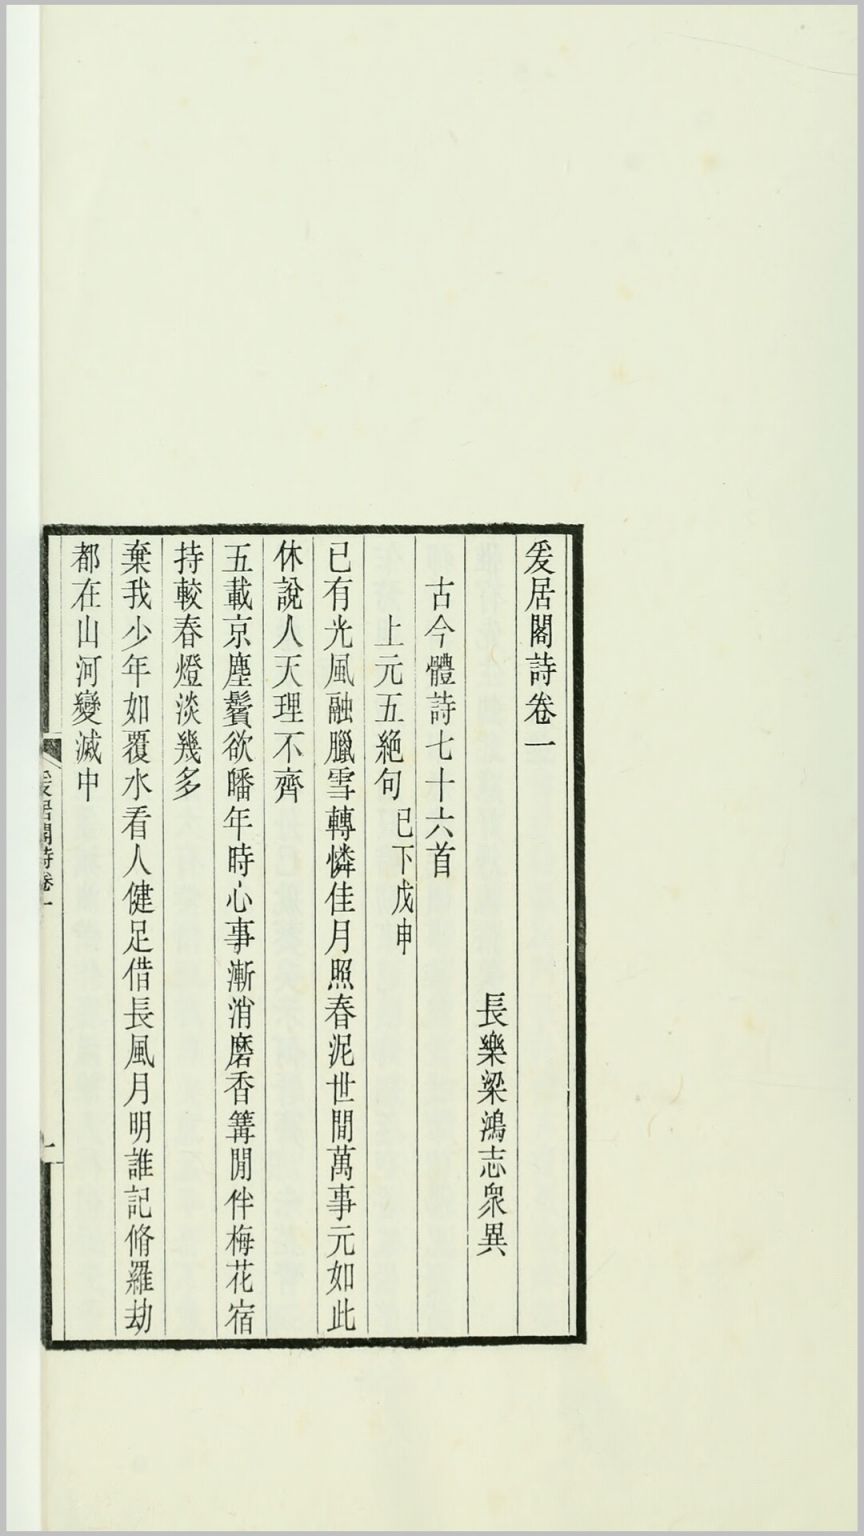 爰居閣詩卷一
長樂梁鴻志衆異
古今體詩七十六首
上元五絕句 已下戊申
已有光風融臘雪轉憐佳月照春泥世間萬事元如此
休說人天理不齊
五載京塵鬢欲皤年時心事漸消磨香篝閒伴梅花宿
持較春燈淡幾多
棄我少年如覆水看人健足借長風月明誰記脩羅劫
都在山河變滅中
爰居閣詩卷一
一